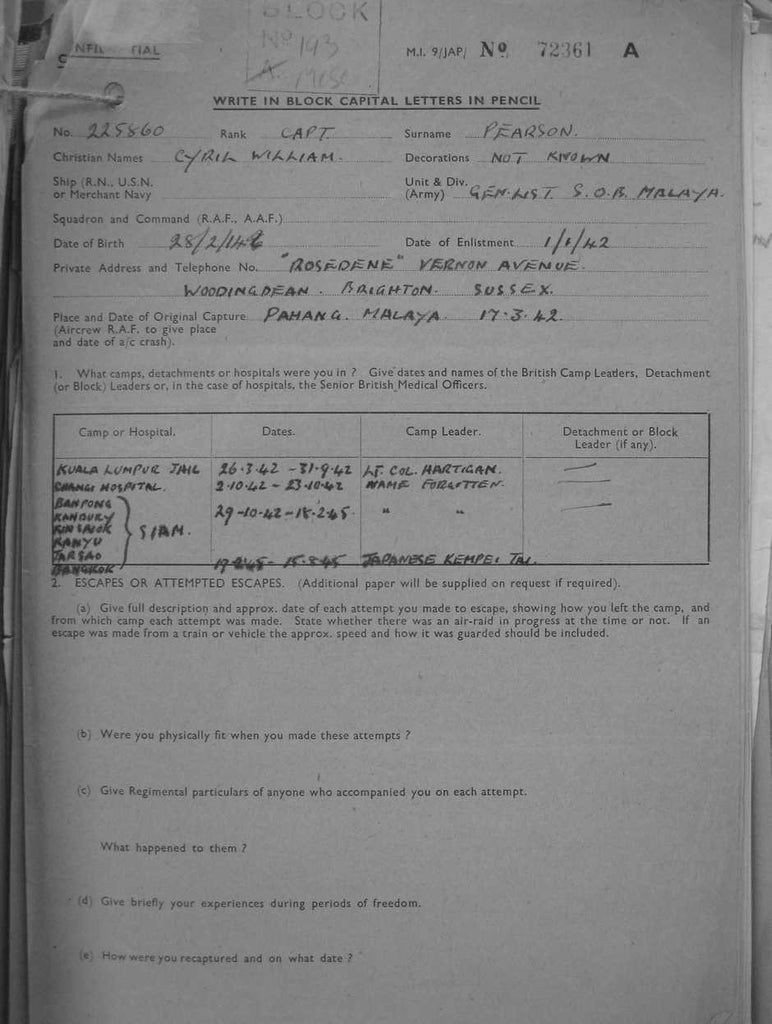 BLOCK
Nº 193
M.I. 9/JAP/ Nº 72361 A
WRITE IN BLOCK CAPITAL LETTERS IN PENCIL
No. 225860 Rank CAPT. Surname PEARSON.
Christian Names CYRIL WILLIAM. Decorations NOT KNOWN
Ship (R.N., U.S.N. or Merchant Navy
Unit & Div. (Army) GEN. LIST. S.O.B. MALAYA.
Squadron and Command (R.A.F., A.A.F.)
Date of Birth 28/2/ Date of Enlistment 1/1/42
Private Address and Telephone No. "ROSEDENE" VERNON AVENUE.
WOODINGDEAN. BRIGHTON. SUSSEX.
Place and Date of Original Capture PAHANG. MALAYA. 17.3.42.
(Aircrew R.A.F. to give place
and date of a/c crash).
1. What camps, detachments or hospitals were you in ? Give dates and names of the British Camp Leaders, Detachment
(or Block) Leaders or, in the case of hospitals, the Senior British Medical Officers.
Camp or Hospital. Dates. Camp Leader. Detachment or Block
Leader (if any).
KUALA LUMPUR JAIL 26.3.42 - 31.9.42 LT. COL. HARTIGAN. —
CHANGI HOSPITAL. 2.10.42 - 23.10.42 NAME FORGOTTEN. —
BANPONG
KANBURY 29-10-42 - 15.2.45. " " —
KINSAIOK } SIAM.
KANYU
TARSAO
BANGKOK 15.8.45 JAPANESE KEMPEI TAI.
2. ESCAPES OR ATTEMPTED ESCAPES. (Additional paper will be supplied on request if required).
(a) Give full description and approx. date of each attempt you made to escape, showing how you left the camp, and
from which camp each attempt was made. State whether there was an air-raid in progress at the time or not. If an
escape was made from a train or vehicle the approx. speed and how it was guarded should be included.
(b) Were you physically fit when you made these attempts ?
(c) Give Regimental particulars of anyone who accompanied you on each attempt.
What happened to them ?
(d) Give briefly your experiences during periods of freedom.
(e) How were you recaptured and on what date ?